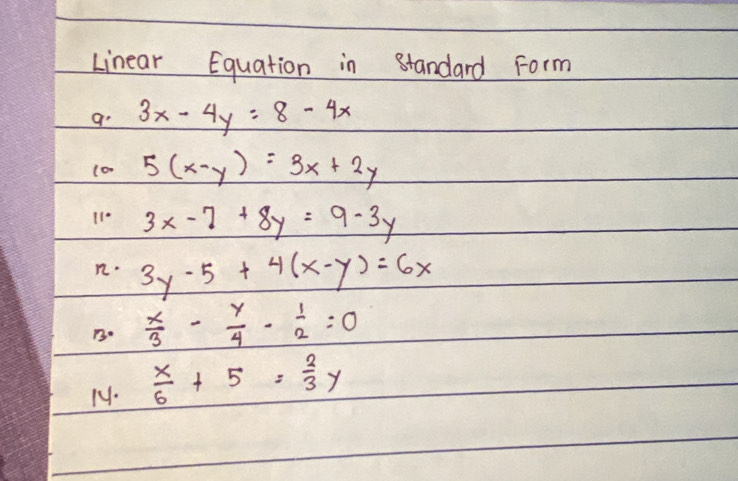 Linear Equation in Standard Form
9. 3x - 4y = 8 - 4x
10 5(x-y) = 3x + 2y
11. 3x - 7 + 8y = 9 - 3y
12. 3y - 5 + 4(x-y) = 6x
13. x/3 - y/4 - 1/2 = 0
14. x/6 + 5 = 2/3 y